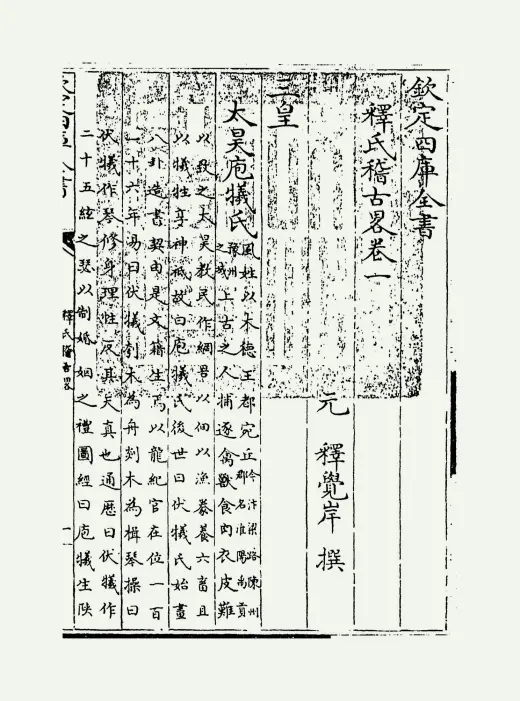 欽定四庫全書
釋氏稽古畧卷一
元 釋覺岸 撰
三皇
太昊庖犧氏風姓以木德王都宛丘今汴梁路陳州郡名淮陽禹貢豫州之域上古之人捕逐禽獸食肉衣皮難
以致之太昊教民作綱罟以佃以漁豢養六畜且
以犧牲享神祇故曰庖犧氏後世曰伏犧氏始畫
八卦造書契由是文籍生焉以龍紀官在位一百
一十六年易曰伏犧刳木為舟剡木為楫琴操曰
伏犧作琴修身理性反其天真也通歷曰伏犧作
二十五絃之瑟以制婚姻之禮圖經曰庖犧生陝
欽定四庫全書
釋氏稽古畧
一